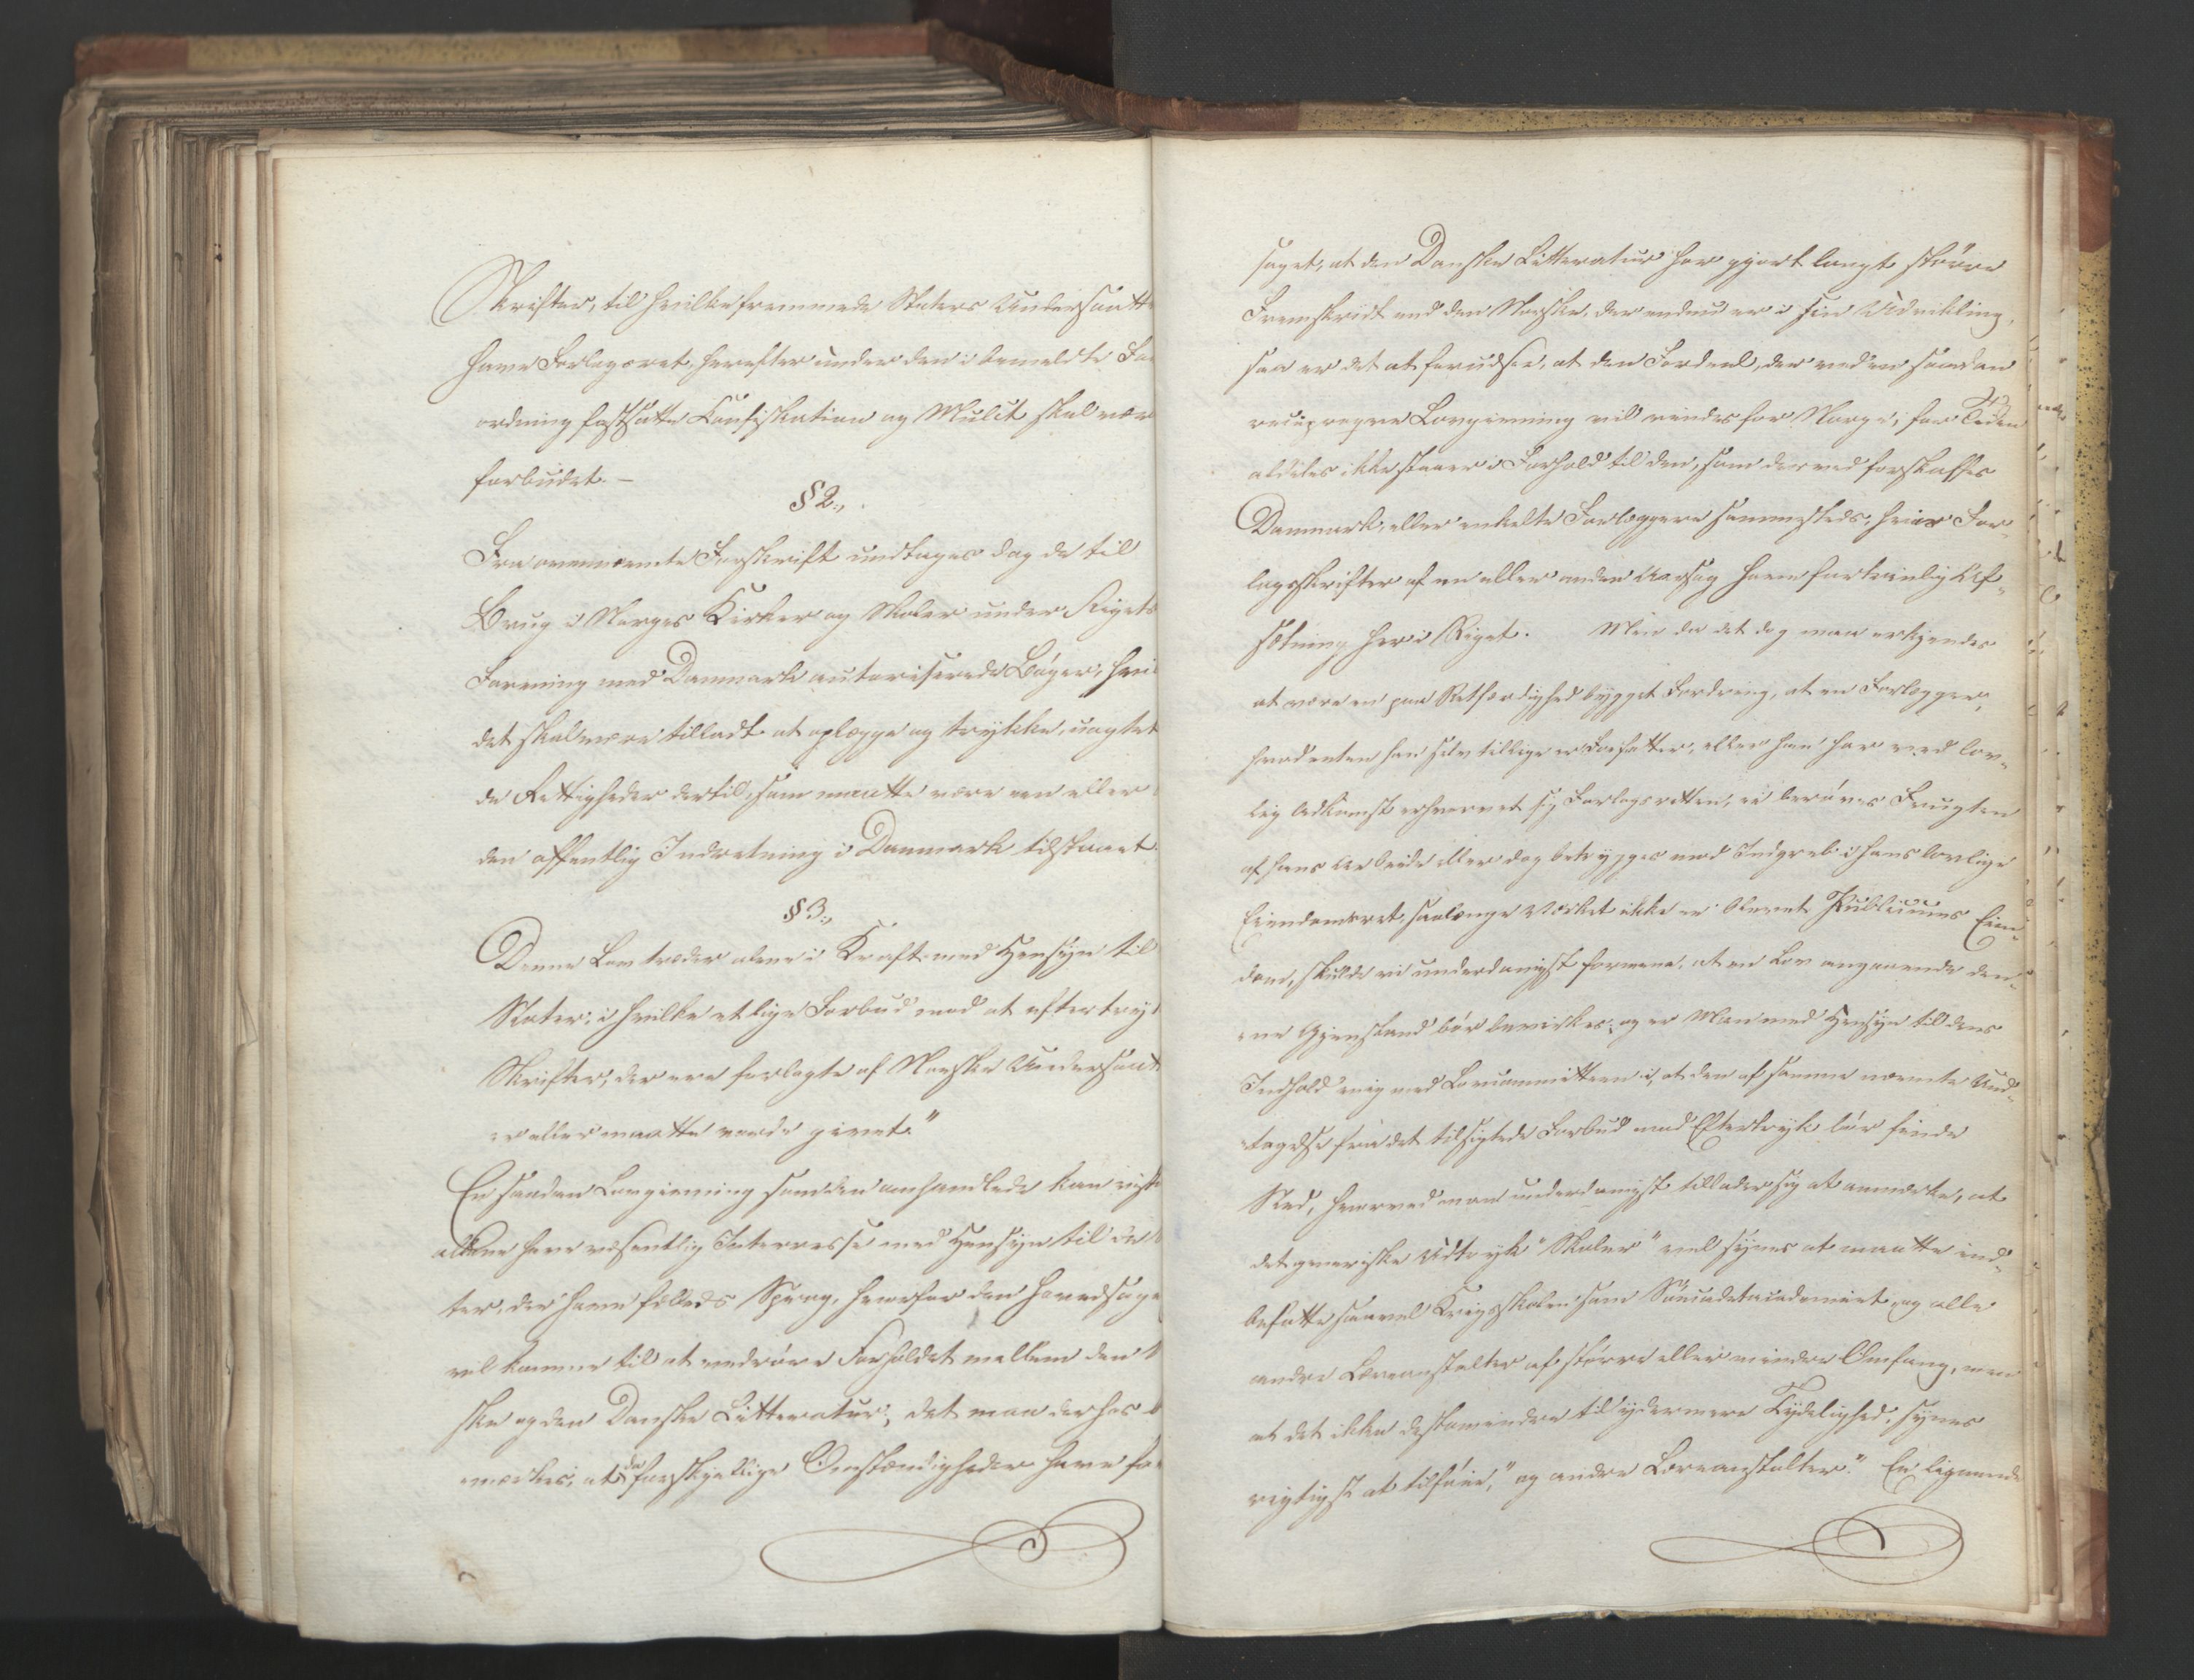 Skrifter, til hvilke fremmede Staters Undersaatte
have Forlagsret, herefter under den i bemeldte For
ordning fastsatte Confiskation og Mulct skal være
forbudet. —
§ 2.,
Fra ovennævnte Forskrift undtages dog de til
Brug i Norges Kirker og Skoler under Rigets
Forening med Danmark autoriserede Bøger, hvil
det skal være tilladt at oplægge og trykke, uagtet
de Rettigheder dertil, som maatte være een eller
den offentlig Indretning i Danmark tilstaaet.
§ 3.,
Denne Lov træder alene i Kraft med Hensyn til
Stater, i hvilke et lige Forbud mod at eftertryk
Skrifter, der ere forlagte af Norske Undersaat
er eller maatte vorde givet."
En saadan Lovgivning som den omhandlede kan
alene have væsentlig Interesse med Hensyn til de
ter, der have fælleds Sprog, hvorfor den hovedsage
vil komme til at vedrøre Forholdet mellem den
ske og den Danske Litteratur; det maa derhos
mærkes, at da forskjellige Omstændigheder have for
saget, at den Danske Litteratur har gjort langt større
Fremskridt end den Norske, der endnu er i sin Udvikling,
saa er det at forudsee, at den Fordeel, der ved en saadan
reciproqve Lovgivning vil vindes for Norge, for Tiden
aldeles ikke staaer i Forhold til den, som derved forskaffes
Danmark, eller enkelte Forlæggere sammesteds, hvis For-
lagsskrifter af en eller anden Aarsag have fortrinlig Af-
sætning her i Riget. Men da det dog maa erkjendes
at være en paa Retfærdighed bygget Fordring, at en Forlægger,
hvad enten han selv tillige er Forfatter, eller han har ved lov-
lig Adkomst erhvervet sig Forlagsretten, ei berøves Frugten
af hans Arbeide eller dog betrygges mod Indgreb i hans lovlige
Eiendomsret, saalænge Værket ikke er blevet Publicums Eien-
dom, skulde vi underdanigst formene, at en Lov angaaende den-
ne Gjenstand bør bevirkes; og er Man med Hensyn til dens
Indhold enig med Lovcommitteen i, at den af samme nævnte Und-
tagelse fra det tilsigtede Forbud mod Eftertryk bør finde
Sted, hvorved man underdanigst tillader sig at anmærke, at
det generiske Udtryk "Skoler" vel synes at maatte ind-
befatte saavel Krigsskolen som Søecadetacademiet og alle
andre Læreanstalter af større eller mindre Omfang, men
at det ikke destomindre til ydermere Tydelighed, synes
rigtigst at tilføie, "og andre Læreanstalter." En lignende